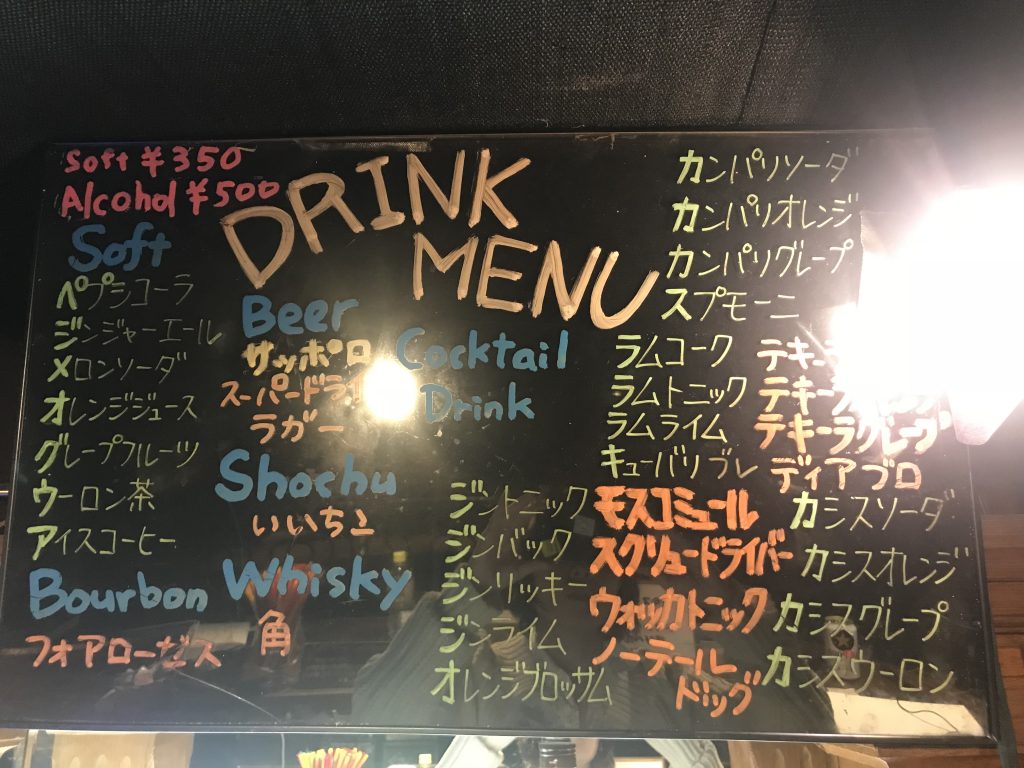 Soft ¥350
Alcohol ¥500
DRINK
MENU
Soft
ペプシコーラ
ジンジャーエール
メロンソーダ
オレンジジュース
グレープフルーツ
ウーロン茶
アイスコーヒー
Bourbon
フォアローゼス
Beer
サッポロ
スーパードライ
ラガー
Shochu
いいちこ
Whisky
角
Cocktail
Drink
ジントニック
ジンバック
ジンリッキー
ジンライム
オレンジブロッサム
カンパリソーダ
カンパリオレンジ
カンパリグレープ
スプモーニ
ラムコーク
ラムトニック
ラムライム
キューバリブレ
モスコミュール
スクリュードライバー
ウォッカトニック
ノーテール
ドッグ
テキーラ
テキーラ
テキーラグレープ
ディアブロ
カシスソーダ
カシスオレンジ
カシスグレープ
カシスウーロン